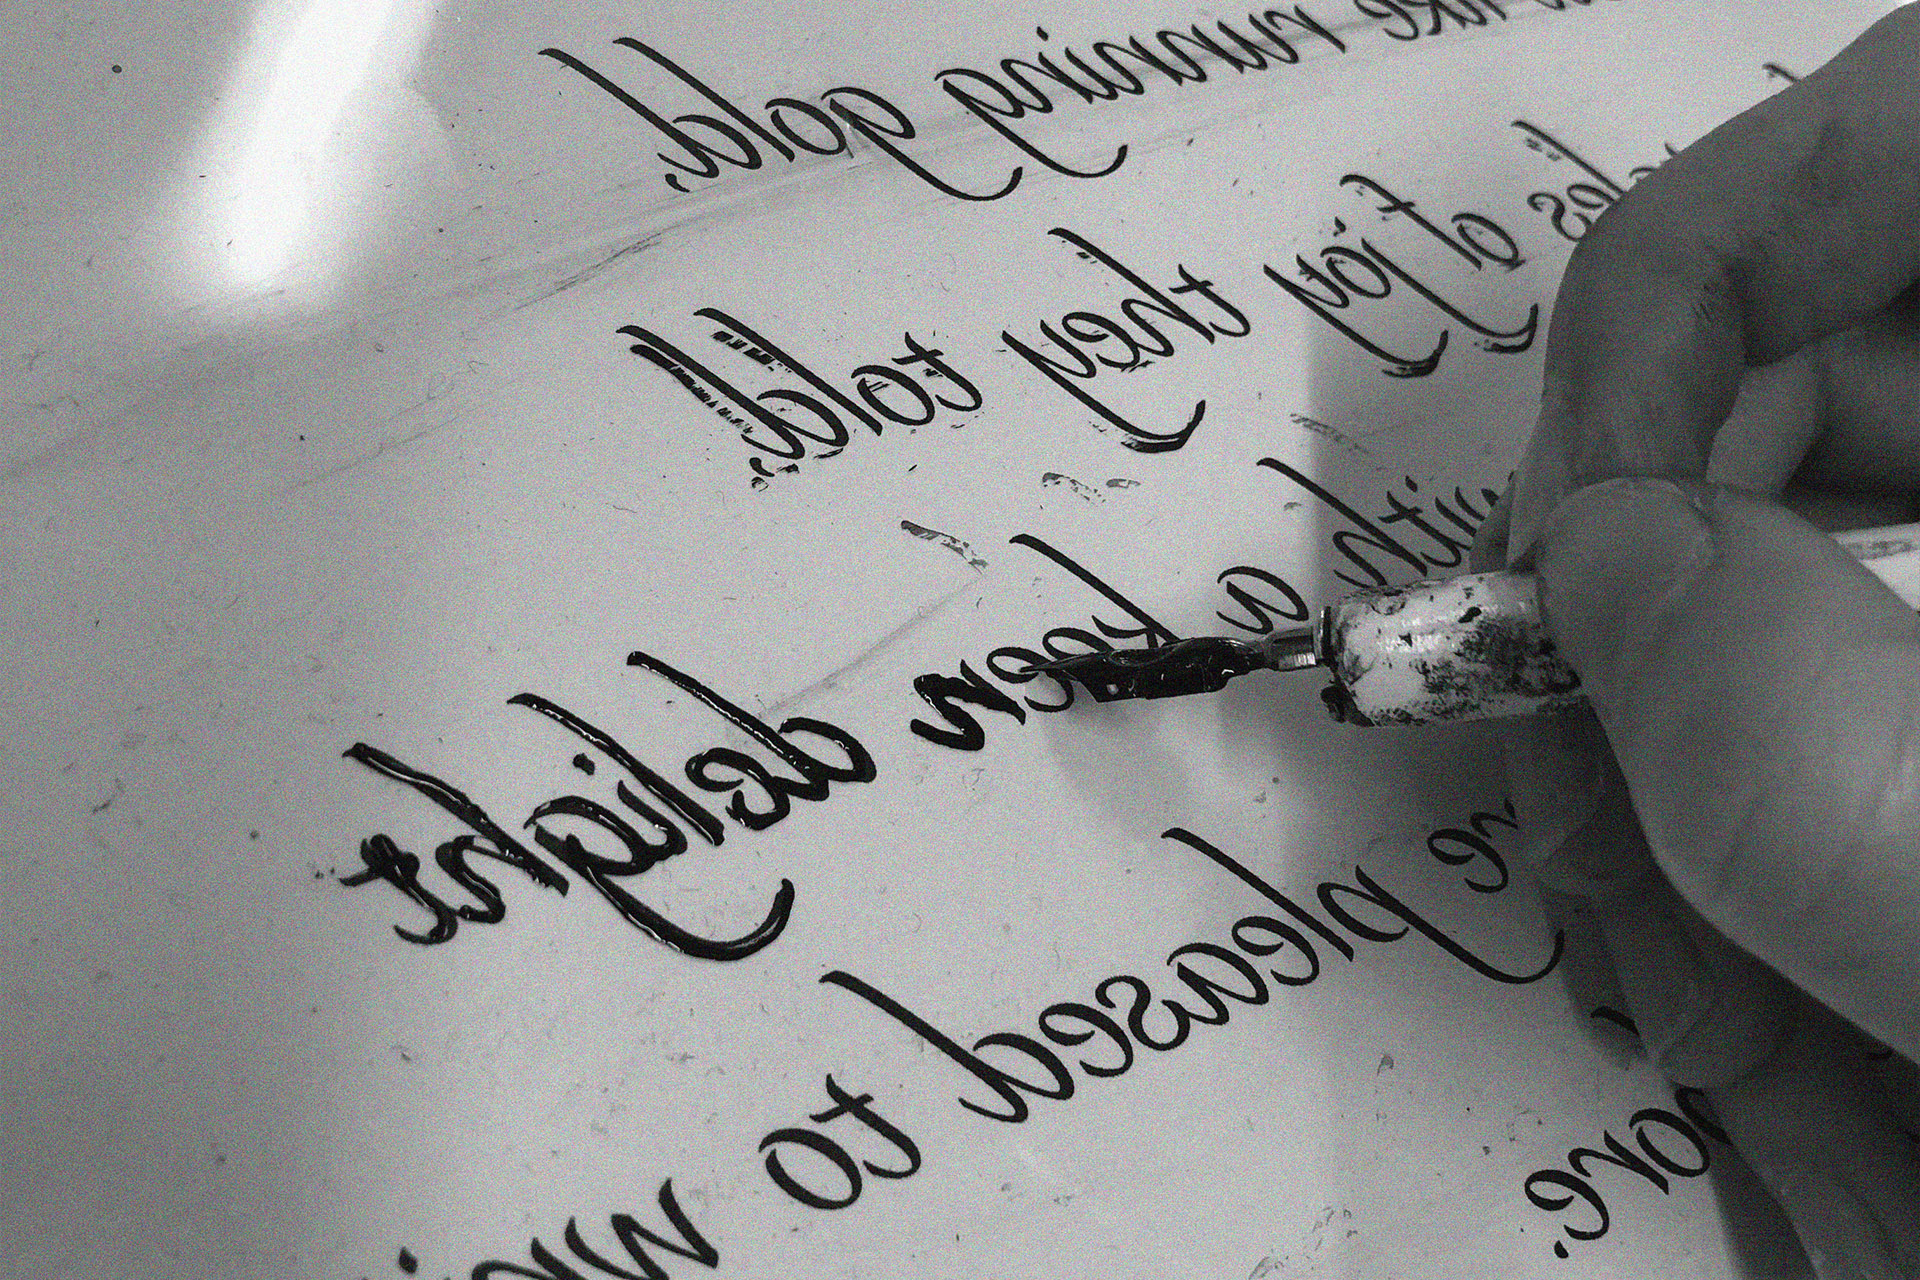 like running gold.
of joy they told.
with a keen delight
pleased to